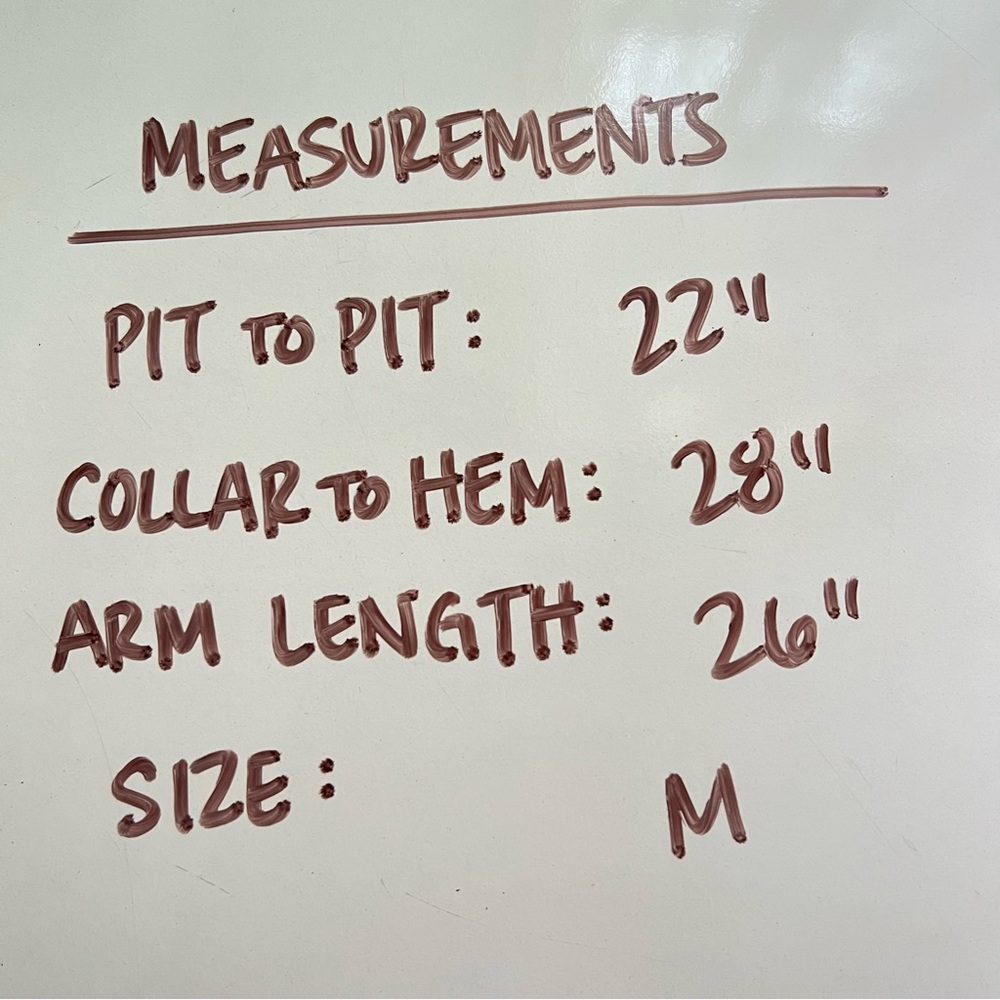 MEASUREMENTS
PIT TO PIT: 22"
COLLAR TO HEM: 28"
ARM LENGTH: 26"
SIZE: M